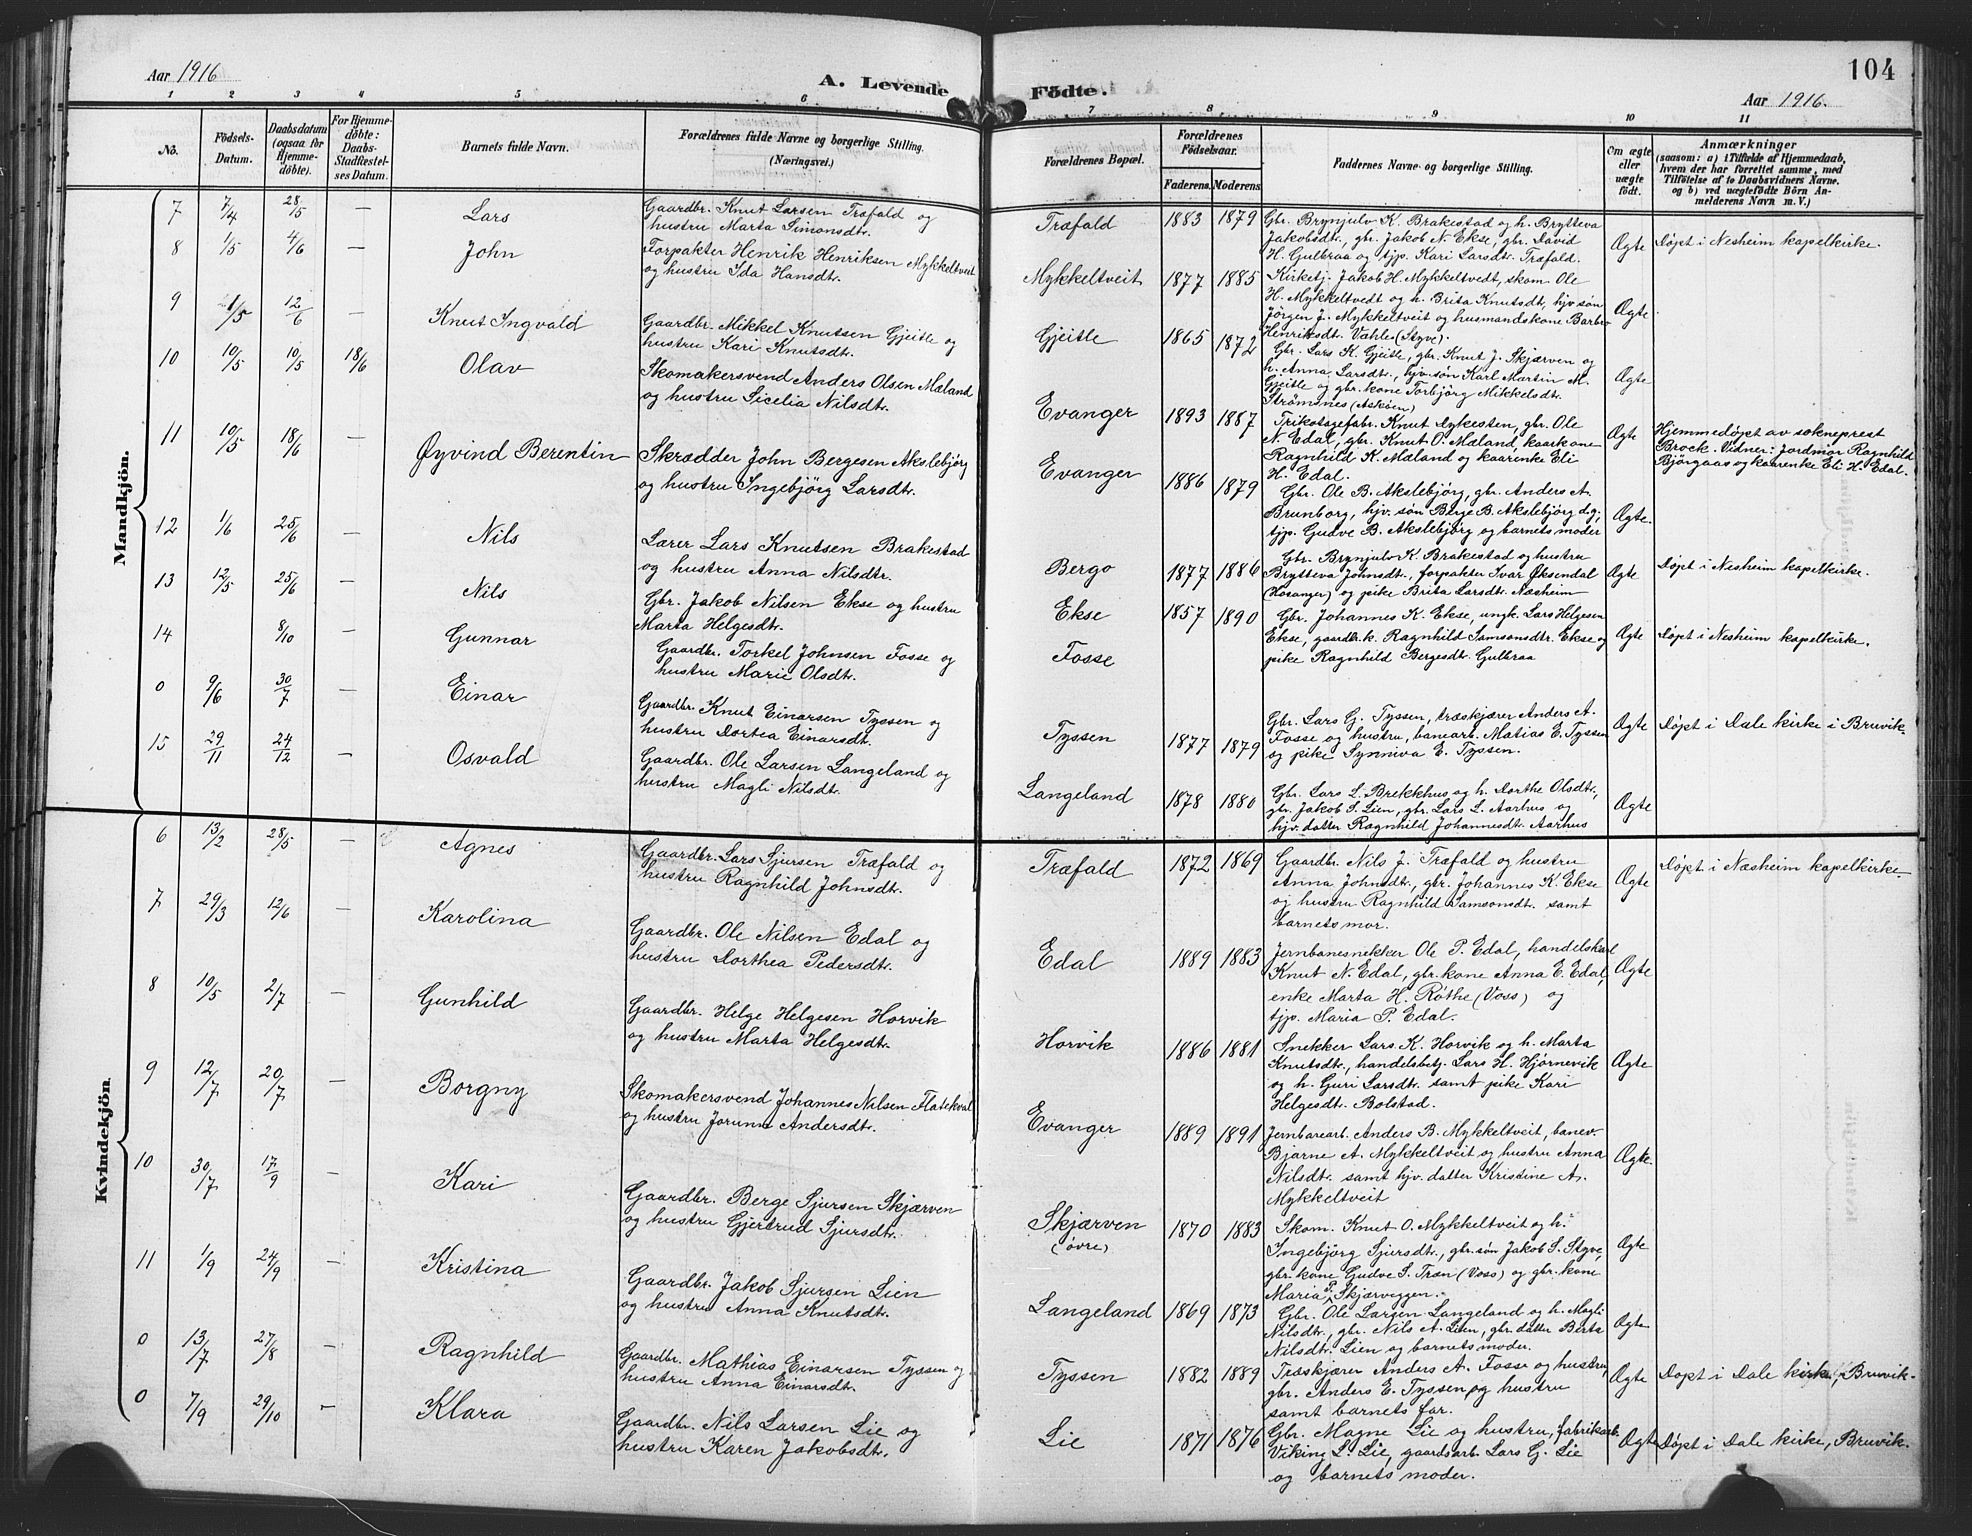 Aar 1916
A. Levende
1 2 3 4 5 6
No.
Födsels-
Datum.
Daabsdatum
(ogsaa for
Hjemme-
döbte).
For Hjemme-
döbte:
Daabs-
Stadfæstel-
ses Datum.
Barnets fulde Navn.
Forældrenes fulde Navne og borgerlige Stilling.
(Næringsvei.)
Mandkjön.
7 7/4 28/5 — Lars
Gaardbr. Knut Larsen Træfald og
hustru Marta Simonsdtr.
8 1/5 4/6 — John
Forpakter Henrik Henriksen Mykkeltveit
og hustru Ida Hansdt.
9 1/5 12/6 — Knut Ingvald
Gaardbr. Mikkel Knutsen Gjeitle og
hustru Kari Knutsdt.
10 10/5 10/5 18/6 Olav
Skomakersvend Anders Olsen Mæland
og hustru Sicelia Nilsdt.
11 10/5 18/6 — Øyvind Berentin
Skrædder John Bergesen Akslebjørg
og hustru Ingebjörg Larsdt.
12 1/6 25/6 — Nils
Lærer Lars Knutsen Brakestad
og hustru Anna Nilsdtr.
13 12/5 25/6 — Nils
Gbr. Jakob Nilsen Ekse og hustru
Marta Helgesdt.
14 8/10 — Gunnar
Gaardbr. Torkel Johnsen Fosse og
hustru Marie Olsdt.
0 9/6 30/7 — Einar
Gaardbr. Knut Einarsen Tyssen og
hustru Dortea Einarsdt.
15 29/11 24/12 — Osvald
Gaardbr. Ole Larsen Langeland og
hustru Magli Nilsdt.
Kvindekjön.
6 13/2 28/5 — Agnes
Gaardbr. Lars Sjursen Træfald og
hustru Ragnhild Johnsdt.
7 29/3 12/6 — Karolina
Gaardbr. Ole Nilsen Edal og
hustru Dorthea Pedersdt.
8 10/5 2/7 — Gunhild
Gaardbr. Helge Helgesen Horvik
og hustru Marta Helgesdt.
9 12/7 20/7 — Borgny
Skomakersvend Johannes Nilsen Flatekval
og hustru Jorunn Andersdt.
10 30/7 17/9 — Kari
Gaardbr. Berge Sjursen Skjærven
og hustru Gjertrud Sjursdt.
11 1/9 24/9 — Kristina
Gaardbr. Jakob Sjursen Lien
og hustru Anna Knutsdt.
0 13/7 27/8 — Ragnhild
Gaardbr. Mathias Einarsen Tyssen og
hustru Anna Einarsdt.
0 7/9 29/10 — Klara
Gaardbr. Nils Larsen Lie og
hustru Karen Jakobsdt.
104
Födte.
Aar 1916.
7 8 9 10 11
Forældrenes Bopæl.
Forældrenes
Födselsaar.
Faderens. Moderens.
Faddernes Navne og borgerlige Stilling.
Om ægte
eller
uægte
födt.
Anmærkninger
(saasom: a) i Tilfælde af Hjemmedaab,
hvem der har forrettet samme, med
Tilföielse af to Daabsvidners Navne.
og b) ved uægtefödte Börn An-
melderens Navn m. V.)
Træfald 1883 1879
Gbr. Brynjulv K. Brakestad og h. Brytteva
Jakobsdt., gbr. Jakob N. Ekse, gbr. David
H. Gulbraa og tjp. Kari Larsdt. Træfald.
Ægte Døpt i Nesheim kapelkirke.
Mykkeltveit 1877 1885
Kirketj. Jakob H. Mykkeltvedt, skom. Ole
H. Mykkeltvedt og h. Brita Knutsdt, hjv. søn
Jørgen J. Mykkeltveit og husmandskone Barbro
Henriksdt. Vahle (Styve).
Ægte
Gjeitle 1865 1872
Gbr. Lars K. Gjeitle, gbr. Knut J. Skjærven og
h. Anna Larsdt., hjv. søn Karl Martin M.
Gjeitle og gbr. kone Torbjørg Mikkelsdt.
Strømsnes (Askøen)
Ægte
Evanger 1893 1887
Trikotagefabr. Knut Dykesten, gbr. Ole
N. Edal, gbr. Knut O. Mæland, kaarkone
Ragnhild K. Mæland og kaarenke Eli
H. Edal.
Ægte Hjemmedøpt av sokneprest
Brock. Vidner: Jordmor Ragnhild
Bjørgaas og kaarenke Eli H. Edal.
Evanger 1886 1879
Gbr. Ole B. Akslebjørg, gbr. Anders A.
Brunborg, hjv. søn Berge B. Akslebjørg d.g.,
tjp. Gudve B. Akslebjørg og barnets moder
Ægte.
Bergo 1877 1886
Gbr. Brynjulv K. Brakestad og hustru
Brytteva Johnsdt., forpakter Ivar Øksendal
(Hosanger) og pike Brita Larsdt. Næsheim
Ægte Døpt i Nesheim kapelkirke.
Ekse 1857 1890
Gbr. Johannes K. Ekse, ungk. Lars Helgesen
Ekse, gaardbr.k. Ragnhild Samsonsdt. Ekse og
pike Ragnhild Bergesdt. Gulbraa
Ægte Døpt i Nesheim kapelkirke.
Fosse
Tyssen 1877 1879
Gbr. Lars G. Tyssen, træskjærer Anders A.
Fosse og hustru, banearb. Matias E. Tyssen
og pike Synniva E. Tyssen.
Ægte Døpt i Dale kirke i Bruvik.
Langeland 1878 1880
Gbr. Lars L. Brekkhus og h. Dorthe Olsdt.,
gbr. Jakob S. Lien, gbr. Lars L. Aarhus og
hjv. datter Ragnhild Johannesdt. Aarhus
Ægte
Træfald 1872 1869
Gaardbr. Nils J. Træfald og hustru
Anna Johnsdt., gbr. Johannes K. Ekse
og hustru Ragnhild Samsonsdt. samt
barnets mor.
Ægte Døpt i Næsheim kapelkirke.
Edal 1889 1883
Jernbanesnekker Ole P. Edal, handelskarl
Knut N. Edal, gbr. kone Anna E. Edal,
enke Marta H. Røthe (Voss) og
tjp. Maria P. Edal.
Ægte
Horvik 1886 1881
Snekker Lars K. Horvik og h. Marta
Knutsdt., handelsbetj. Lars H. Hjørnevik
og h. Guri Larsdt. samt pike Kari
Helgesdt. Bolstad.
Ægte
Evanger 1889 1891
Jernbanearb. Anders B. Mykkeltveit, banev.
Bjarne A. Mykkeltveit og hustru Anna
Nilsdt. samt hjv. datter Kristine A.
Mykkeltveit
Ægte.
Skjærven
(øvre) 1870 1883
Skom. Knut O. Mykkeltveit og h.
Ingebjörg Sjursdt., gbr. søn Jakob S. Styve,
gbr. kone Gudve S. Træn (Voss) og gbr. kone
Maria P. Skjærveggen.
Ægte
Langeland 1869 1873
Gbr. Ole Larsen Langeland og h. Magli
Nilsdt., gbr. Nils A. Lien, gbr. datter Berta
Nilsdt. Lien og barnets moder.
Ægte
Tyssen 1882 1889
Træskjærer Anders A. Fosse og hustru,
gbr. Anders E. Tyssen og hustru
samt barnets far.
Ægte Døpt i Dale kirke, Bruvik.
Lie 1871 1876
Gbr. Magne Lie og hustru, fabrikarb.
Viking L. Lie, gaardsarb. Lars G. Lie
og barnets moder.
Ægte Døpt i Dale kirke, Bruvik.